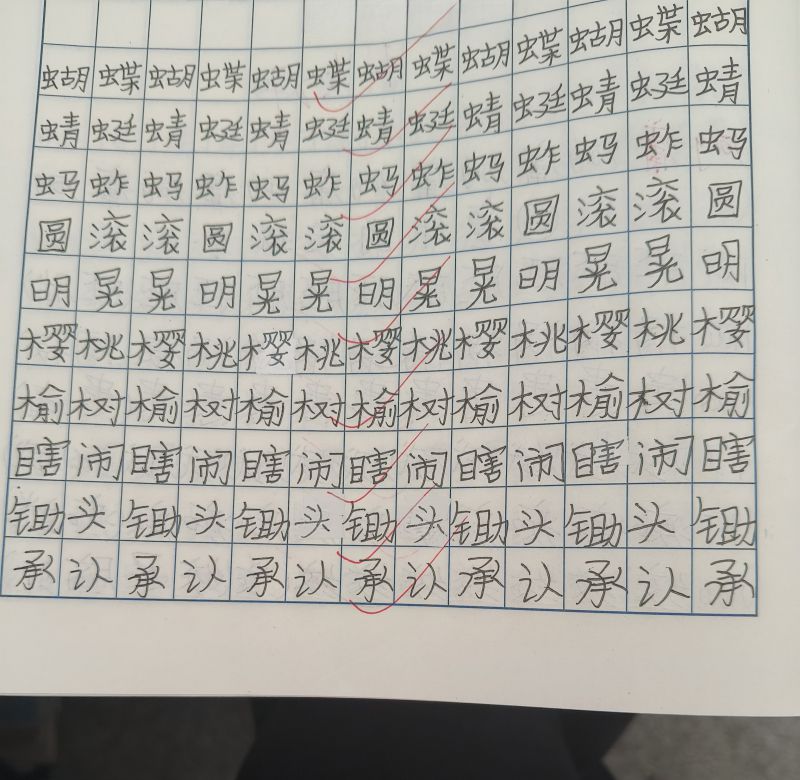 蝴蝶蝴蝶蝴蝶蝴蝶蝴蝶蝴蝶蝴
蜻蜓蜻蜓蜻蜓蜻蜓蜻蜓蜻蜓蜻
蚂蚱蚂蚱蚂蚱蚂蚱蚂蚱蚂蚱蚂
圆滚滚圆滚滚圆滚滚圆滚滚圆
明晃晃明晃晃明晃晃明晃晃明
樱桃樱桃樱桃樱桃樱桃樱桃樱
榆树榆树榆树榆树榆树榆树榆
瞎闹瞎闹瞎闹瞎闹瞎闹瞎闹瞎
锄头锄头锄头锄头锄头锄头锄
承认承认承认承认承认承认承